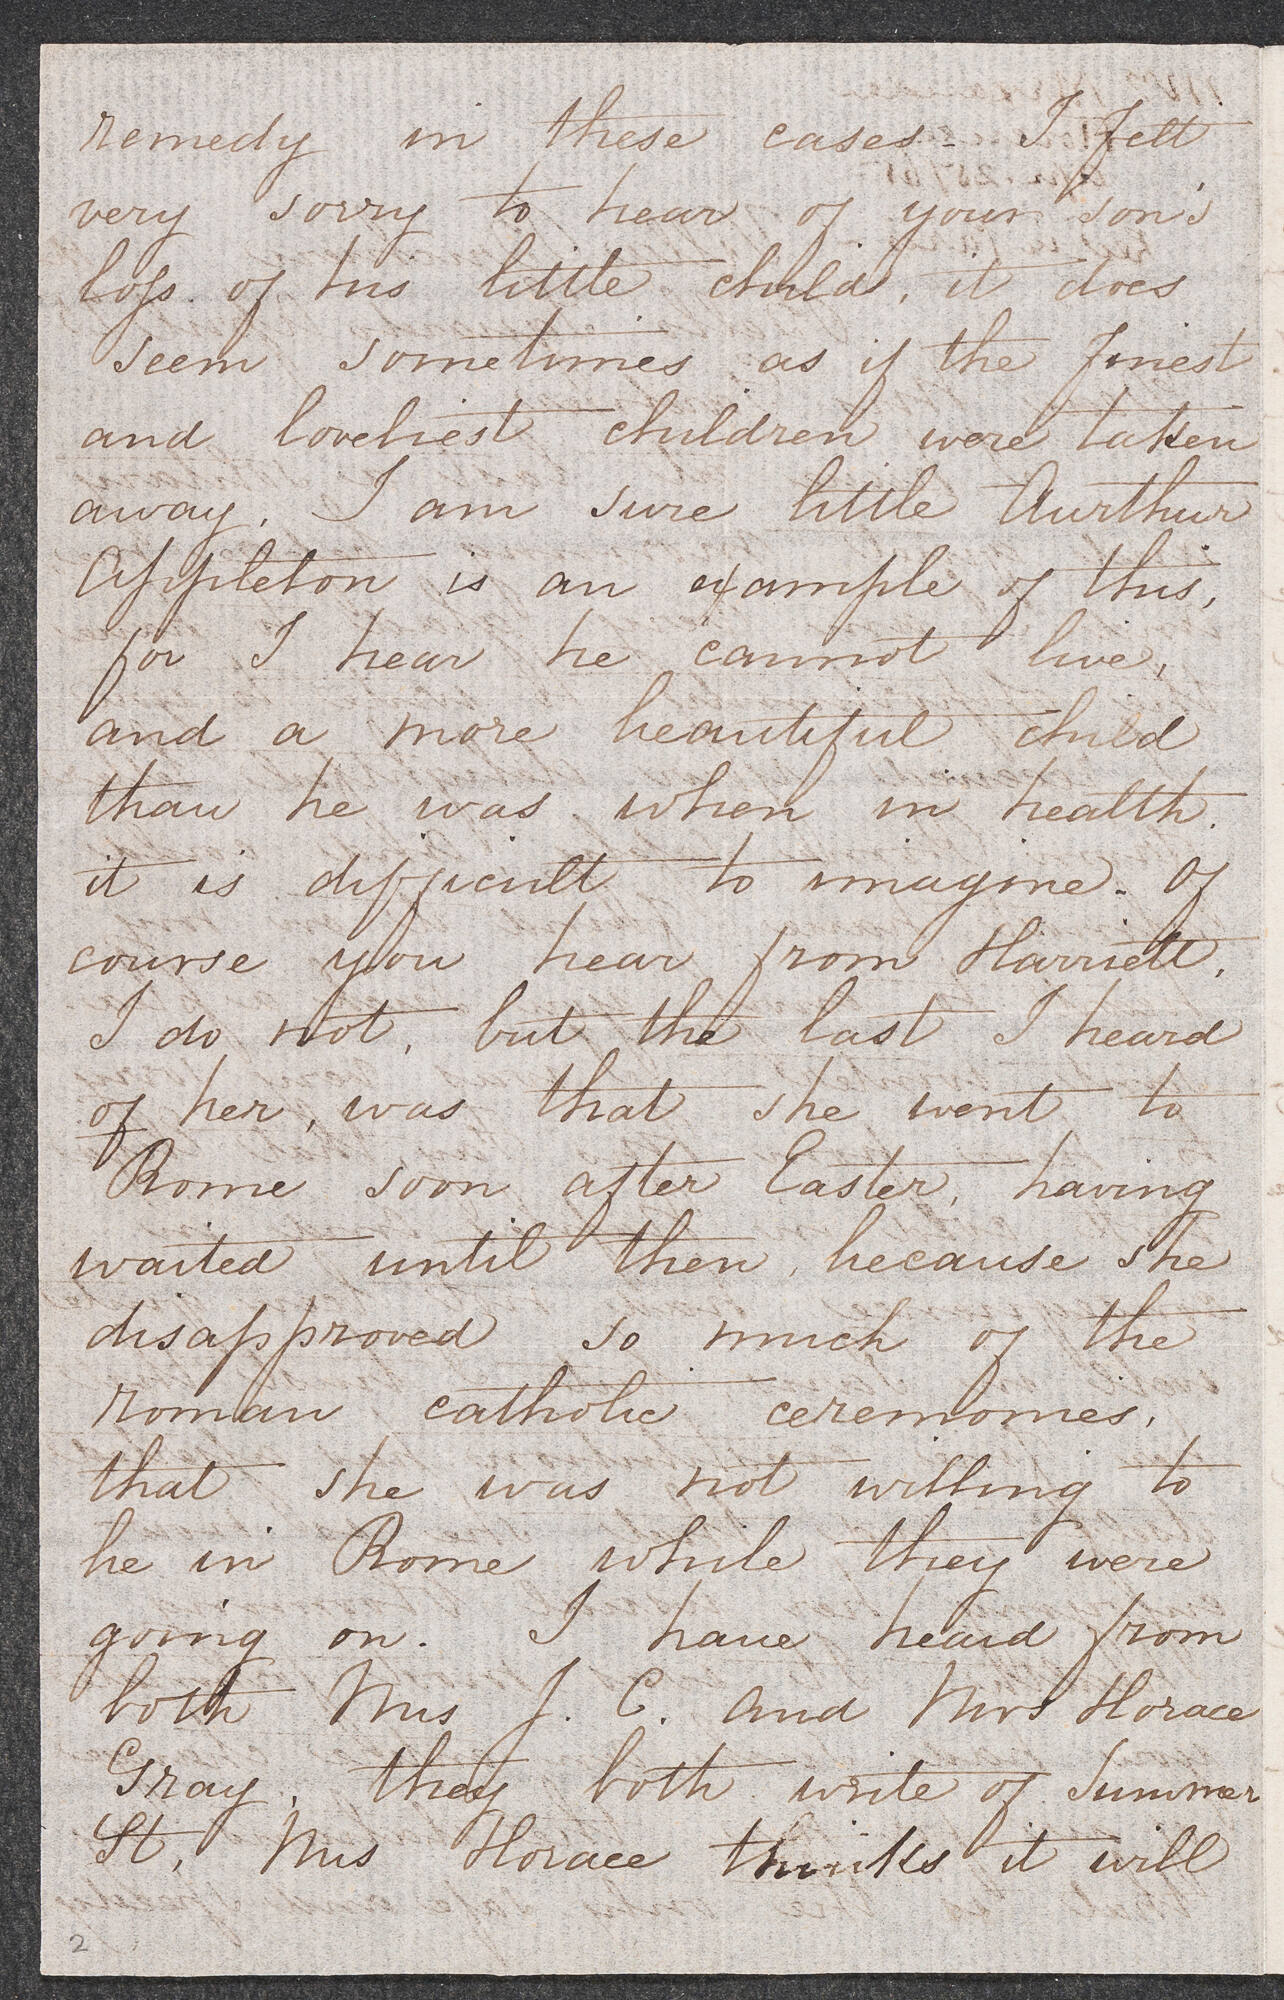 remedy in these cases - I felt
very sorry to hear of your son's
loss of his little child, it does
seem sometimes as if the finest
and loveliest children were taken
away. I am sure little Aurthur
Appleton is an example of this,
for I hear he cannot live,
and a more beautiful child
than he was when in health.
it is difficult to imagine - Of
course you hear from Harriett,
I do not, but the last I heard
of her, was that she went to
Rome soon after Easter, having
waited until then, because she
disapproved so much of the
roman catholic ceremonies,
that she was not willing to
be in Rome while they were
going on. I have heard from
both Mrs J. C. and Mrs Horace
Gray, they both write of Summer
St, Mrs Horace thinks it will
2